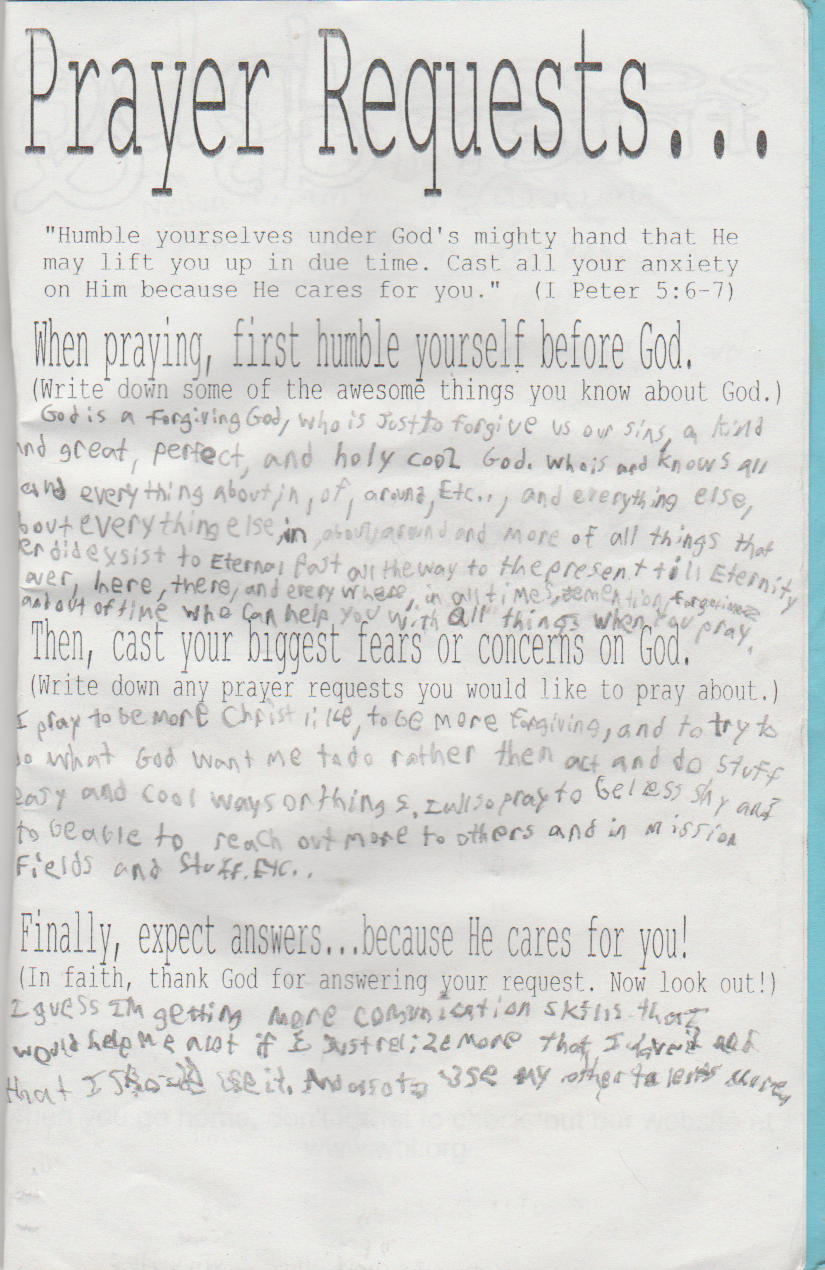 Prayer Requests...
"Humble yourselves under God's mighty hand that He
may lift you up in due time. Cast all your anxiety
on Him because He cares for you." (I Peter 5:6-7)
When praying, first humble yourself before God.
(Write down some of the awesome things you know about God.)
God is a forgiving God, who is just to forgive us our sins, a kind
and great, perfect, and holy cool God. who is and knows all
and everything about, in, of, around, Etc.., and everything else,
bout everything else, in, about, around and more of all things that
er did exsist to Eternal Past all the way to the present till Eternity
aver, here, there, and every where, in all times,
and out of time who can help you with all things when you pray.
Then, cast your biggest fears or concerns on God.
(Write down any prayer requests you would like to pray about.)
I pray to be more Christ like, to be more forgiving, and to try to
do what God want me to do rather then act and do stuff
easy and cool ways or things, I allso pray to be less shy and
to be able to reach out more to others and in mission
Fields and Stuff. Etc..
Finally, expect answers...because He cares for you!
(In faith, thank God for answering your request. Now look out!)
I guess Im getting more comunication skills that
would help me alot if I just relize more that I have it and
that I should use it. And also to use my other talents more,